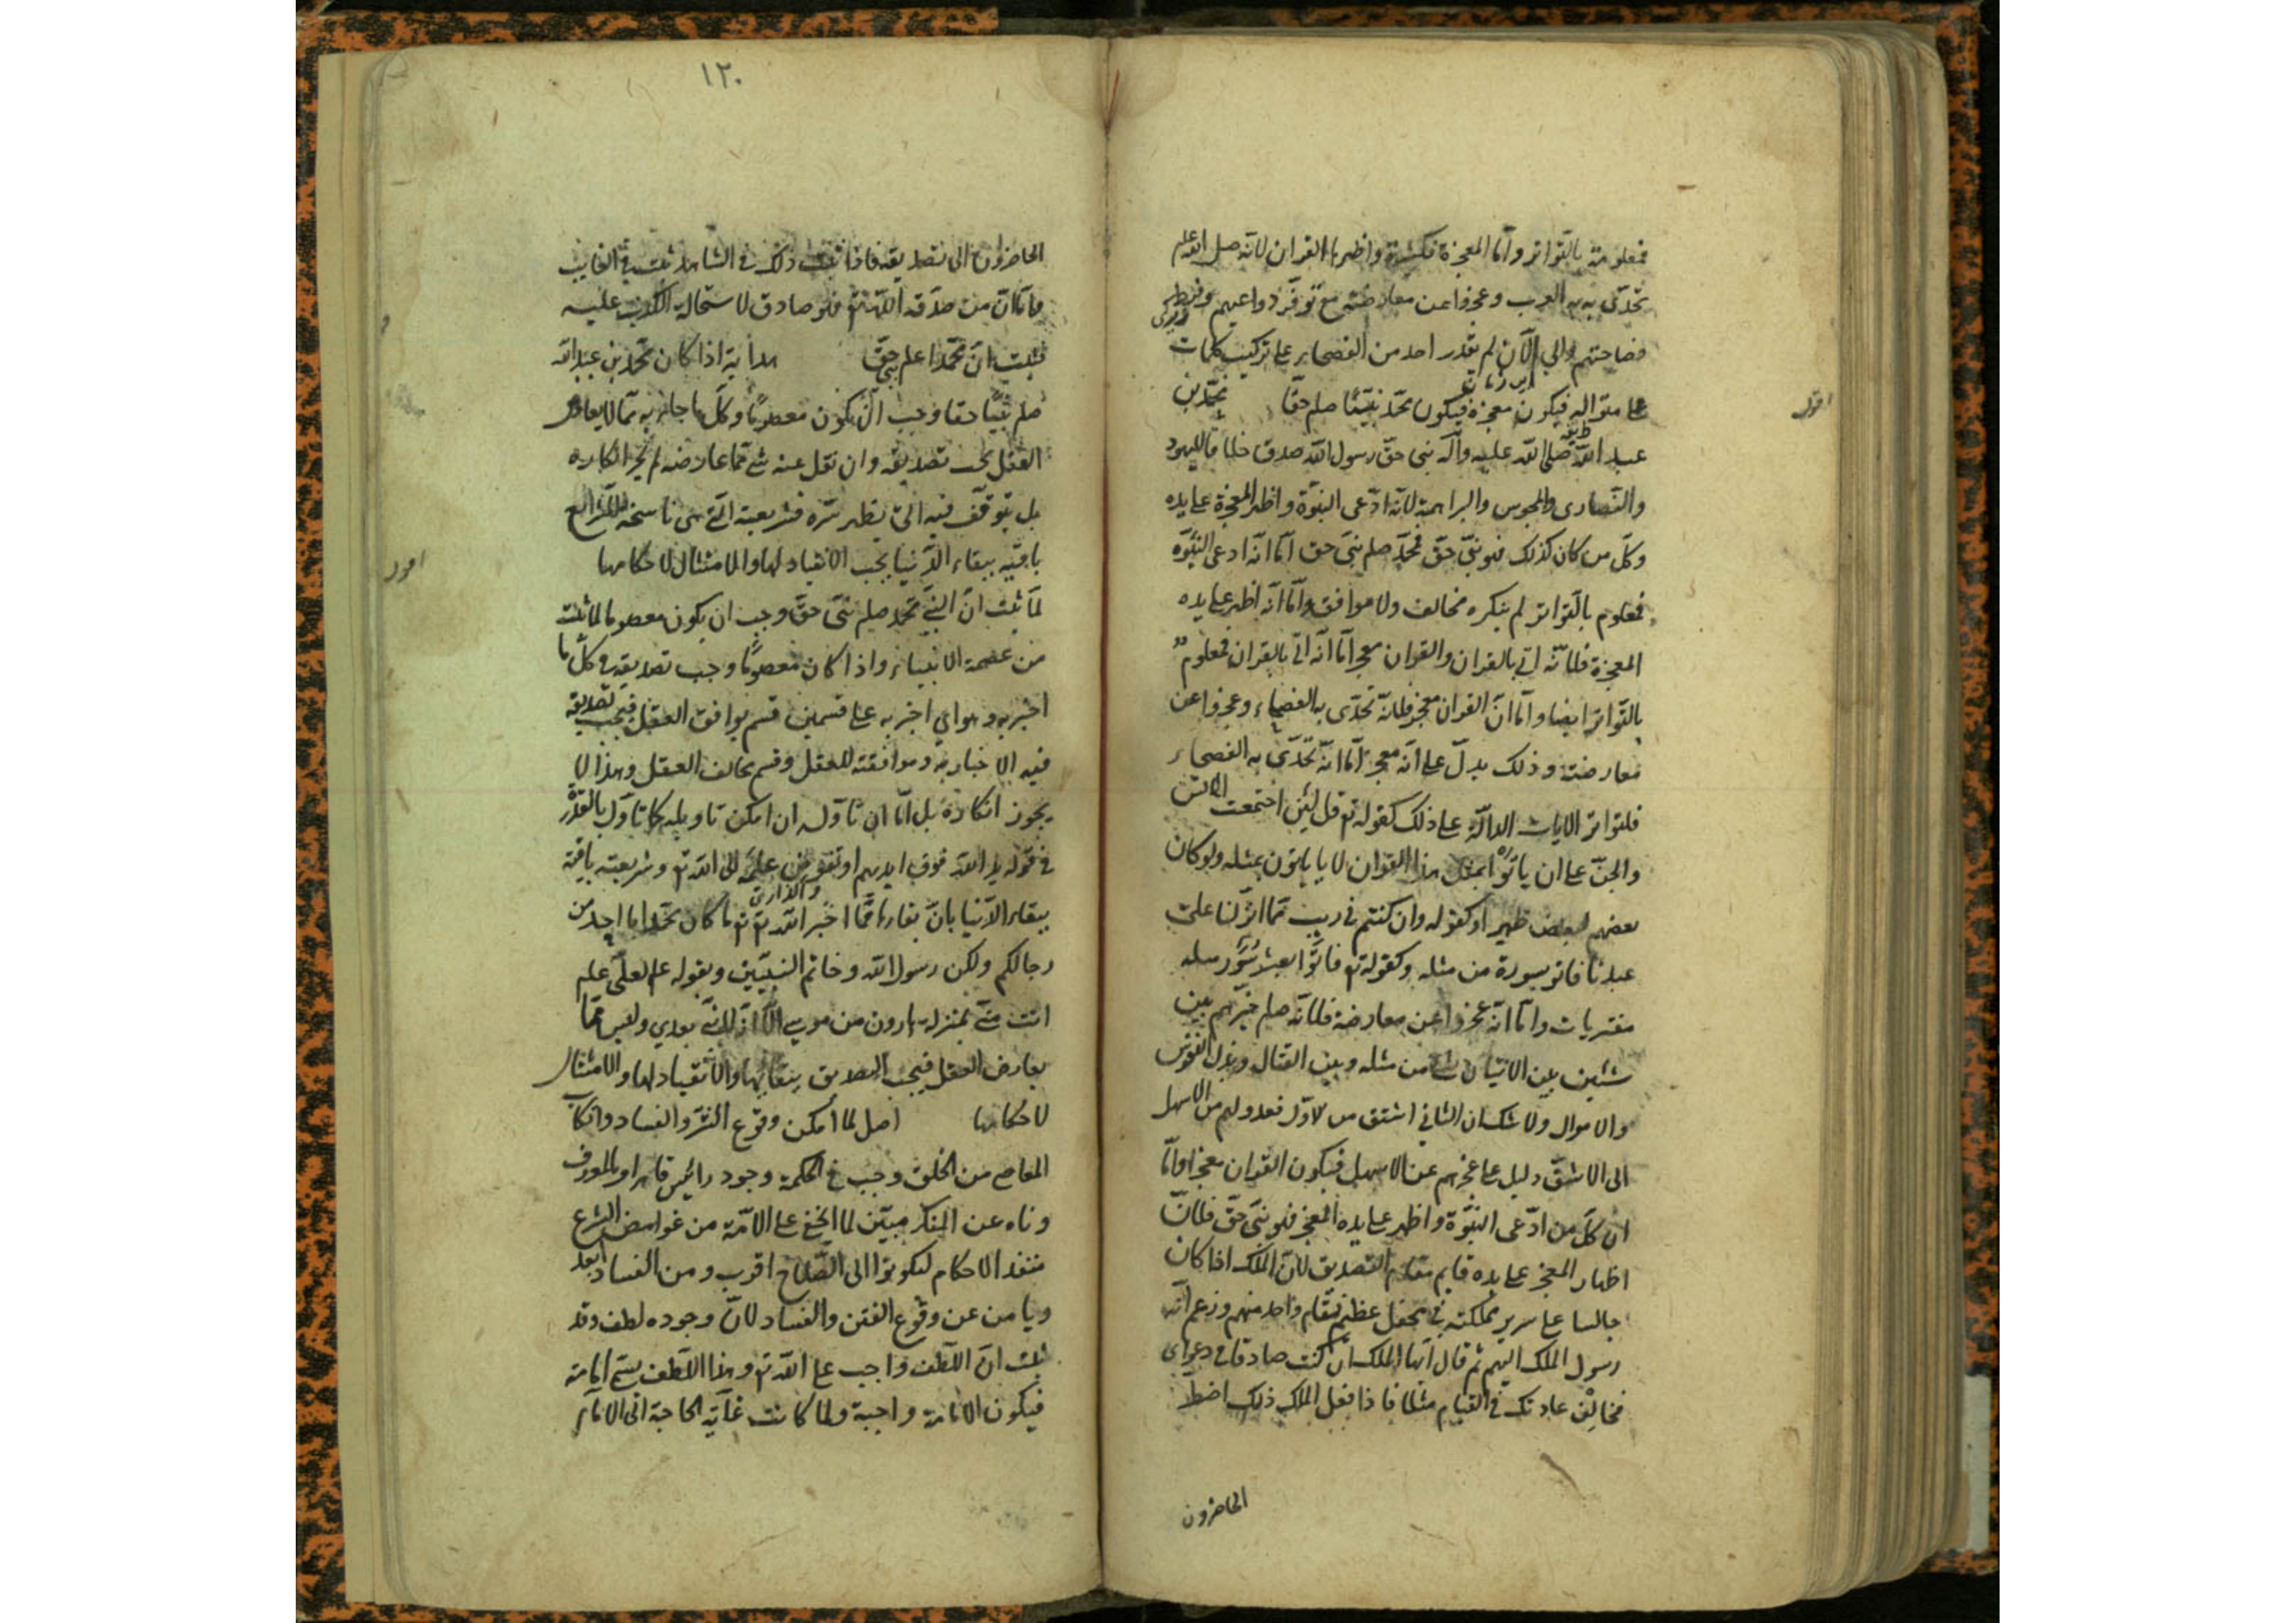 فمعلومة بالتواتر وأما المعجزة فكثيرة واظهرها القران لانه صل الله علم
تحدى به العرب وعجزوا عن معارضته مع توفر دواعيهم وفرط
فصاحتهم والى الآن لم يقدر احد من الفصحاء على تركيب كلمات
على منواله فيكون معجزة فيكون محمد نبيّنا صلم حقا محمد بن
اقول
عبد الله صلى الله عليه وآله نبى حق رسول الله صدق خلافا لليهود
والنصارى والمجوس والبراهمة لانه ادّعى النبوّة واظهر المعجزة على يده
وكلّ من كان كذلك فهو نبىّ حقّ فمحمّد صلم نبىّ حق امّا انّه ادعى النبوّة
فمعلوم بالتواتر لم ينكره مخالف ولا موافق وامّا انّه اظهر على يده
المعجزة فلانّه اتى بالقران والقران معجز امّا انّه اتى بالقران فمعلوم
بالتواتر ايضا وامّا انّ القران معجز فلانّه تحدّى به الفصحاء وعجزوا عن
معارضته وذلك يدلّ على انّه معجز امّا انّه تحدّى به الفصحاء
فلتواتر الايات الدالّة على ذلك كقوله تع قل لئن اجتمعت الانس
والجنّ على ان ياتوا بمثل هذا القران لا ياتون بمثله ولو كان
بعضهم لبعض ظهيرا وكقوله وان كنتم في ريب ممّا انزلنا على
عبدنا فاتو بسورة من مثله وكقوله تع فاتوا بعشر سور مثله
مفتريات وامّا انّه عجزوا عن معارضة فلانّه صلم خيّرهم بين
شيئين بين الاتيان بشئ من مثله وبين القتال وبذل النفوس
والاموال ولا شك ان الثاني اشق من الاوّل فعدولهم من الاسهل
الى الاشقّ دليل على عجزهم عن الاسهل فيكون القران معجزا وامّا
انّ كلّ من ادّعى النبوّة واظهر على يده المعجز فهو نبىّ حقّ فلانّ
اظهار المعجز على يده قايم مقام التصديق لانّ الملك اذا كان
جالسا على سرير مملكته في محفل عظيم فقام واحد منهم وزعم انّه
رسول الملك اليهم ثم قال ايّها الملك ان كنت صادقا فى دعواى
فخالف عادتك في القيام مثلا فاذا فعل الملك ذلك اضطر
الحاضرون
١٢٠
الحاضرون الى تصديقه فاذا ثبت ذلك في الشاهد ثبت في الغايب
وامّا انّ من صدّقه اللّه تع فهو صادق لاستحالة الكذب عليه
فثبت انّ محمّدا علم نبى حقّ هداية اذا كان محمّد بن عبد اللّه
صلم نبيّا حقا وجب ان يكون معصوما وكلّ ما جاء به ممّا لا يعارض
العقل يجب تصديقه وان نقل عنه شئ ممّا عارضه لم يجز انكاره
بل يتوقّف فيه الى يظهر سرّه فشريعته الّتى هى ناسخة للشرايع
باقية ببقاء الدّنيا يجب الانقياد لها والامتثال لاحكامها
اقول
لمّا ثبت انّ النبىّ محمّد صلم نبىّ حقّ وجب ان يكون معصوما لما ثبت
من عصمة الانبياء واذا كان معصومًا وجب تصديقه في كلّ ما
اخبر به وهو اى اخبر به على قسمين قسم يوافق العقل فيجب تصديقه
فيه لاخباره وموافقته للعقل وقسم يخالف العقل وهذا لا
يجوز انكاره بل امّا ان تاوله ان امكن تاويله كما تاول بالقدرة
في قوله يد اللّه فوق ايديهم او تفويض علمه الى اللّه تع وشريعته باقية
ببقاء الدّنيا بانّ بقاءها ممّا اخبر اللّه تع ما كان محمّد ابا احد من
رجالكم ولكن رسول اللّه وخاتم النبيّين وبقوله عم لعلىّ علم
انت منّى بمنزلة هارون من موسى الّا انّه لا نبىّ بعدي وليس ممّا
يعارض العقل فيجب التصديق ببقائها والانقياد لها والامتثال
لاحكامها اصل لما امكن وقوع الشرّ والفساد وارتكاب
المعاصى من الخلق وجب في الحكمة وجود رائيس قاهر امر بالمعروف
وناه عن المنكر مبيّن لما يخفى على الامّة من غوامض الشرع
منفذ الاحكام ليكونوا الى الصّلاح اقرب ومن الفساد ابعد
ويامن عن وقوع الفتن والفساد لانّ وجوده لطف وقد
ثبت انّ اللّطف واجب على اللّه تع وهذا اللّطف يسمّى امامة
فيكون الامامة واجبة ولمّا كانت غاية الحاجة الى الامام